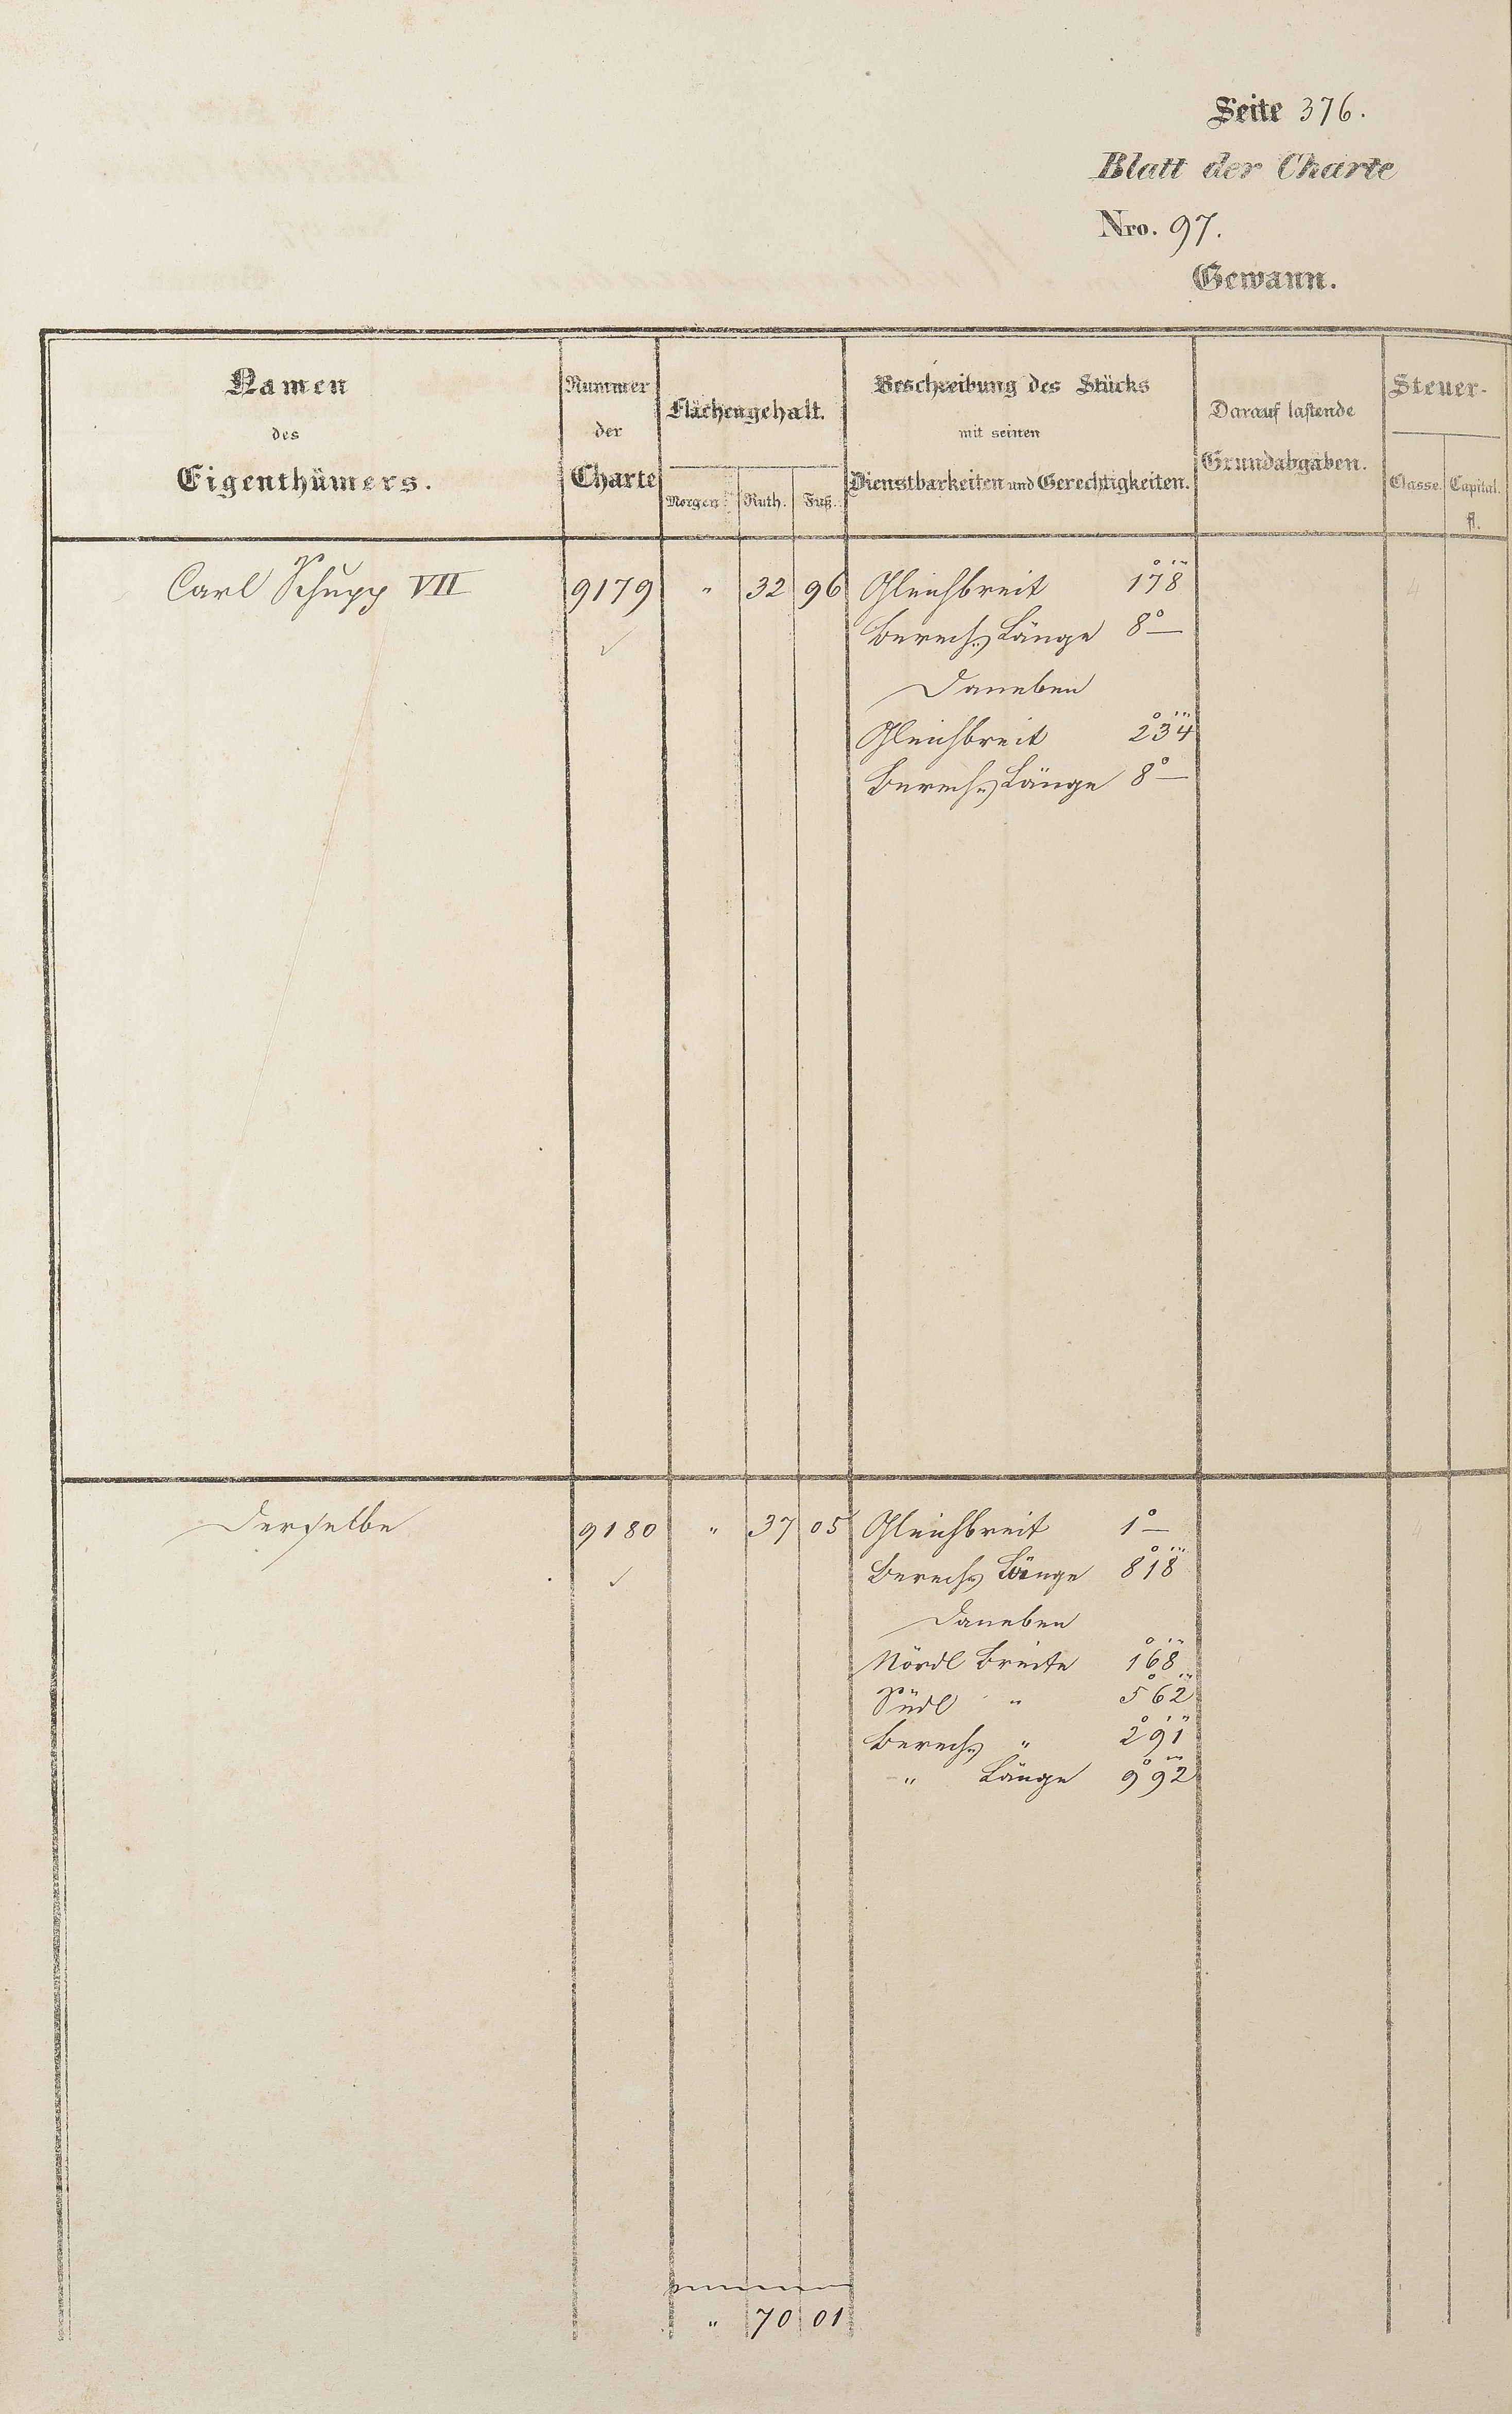 Seite 376.
Blatt der Charte
Nro. 97.
Gewann.
Namen
des
Eigenthümers.
Nummer
der
Charte
Flächengehalt.
Morgen Ruth. Fuß.
Beschreibung des Stücks
mit seinen
Dienstbarkeiten und Gerechtigkeiten.
Darauf lastende
Grundabgaben.
Steuer-
Classe. Capital.
fl.
Carl Schupp VII 9179 " 32 96 Gleichbreit 1° 7' 8"
✓ Berech. Länge 8° —
Daneben
Gleichbreit 2° 3' 4"
Berech. Länge 8° —
4
Derselbe 9180 " 37 05 Gleichbreit 1° —
✓ Berech. Länge 8° 1' 8"
Daneben
Nördl Breite 1° 6' 8"
Südl " 5° 6' 2"
Berech. " 2° 9' 1"
" Länge 9° 9' 2"
4
" 70 01